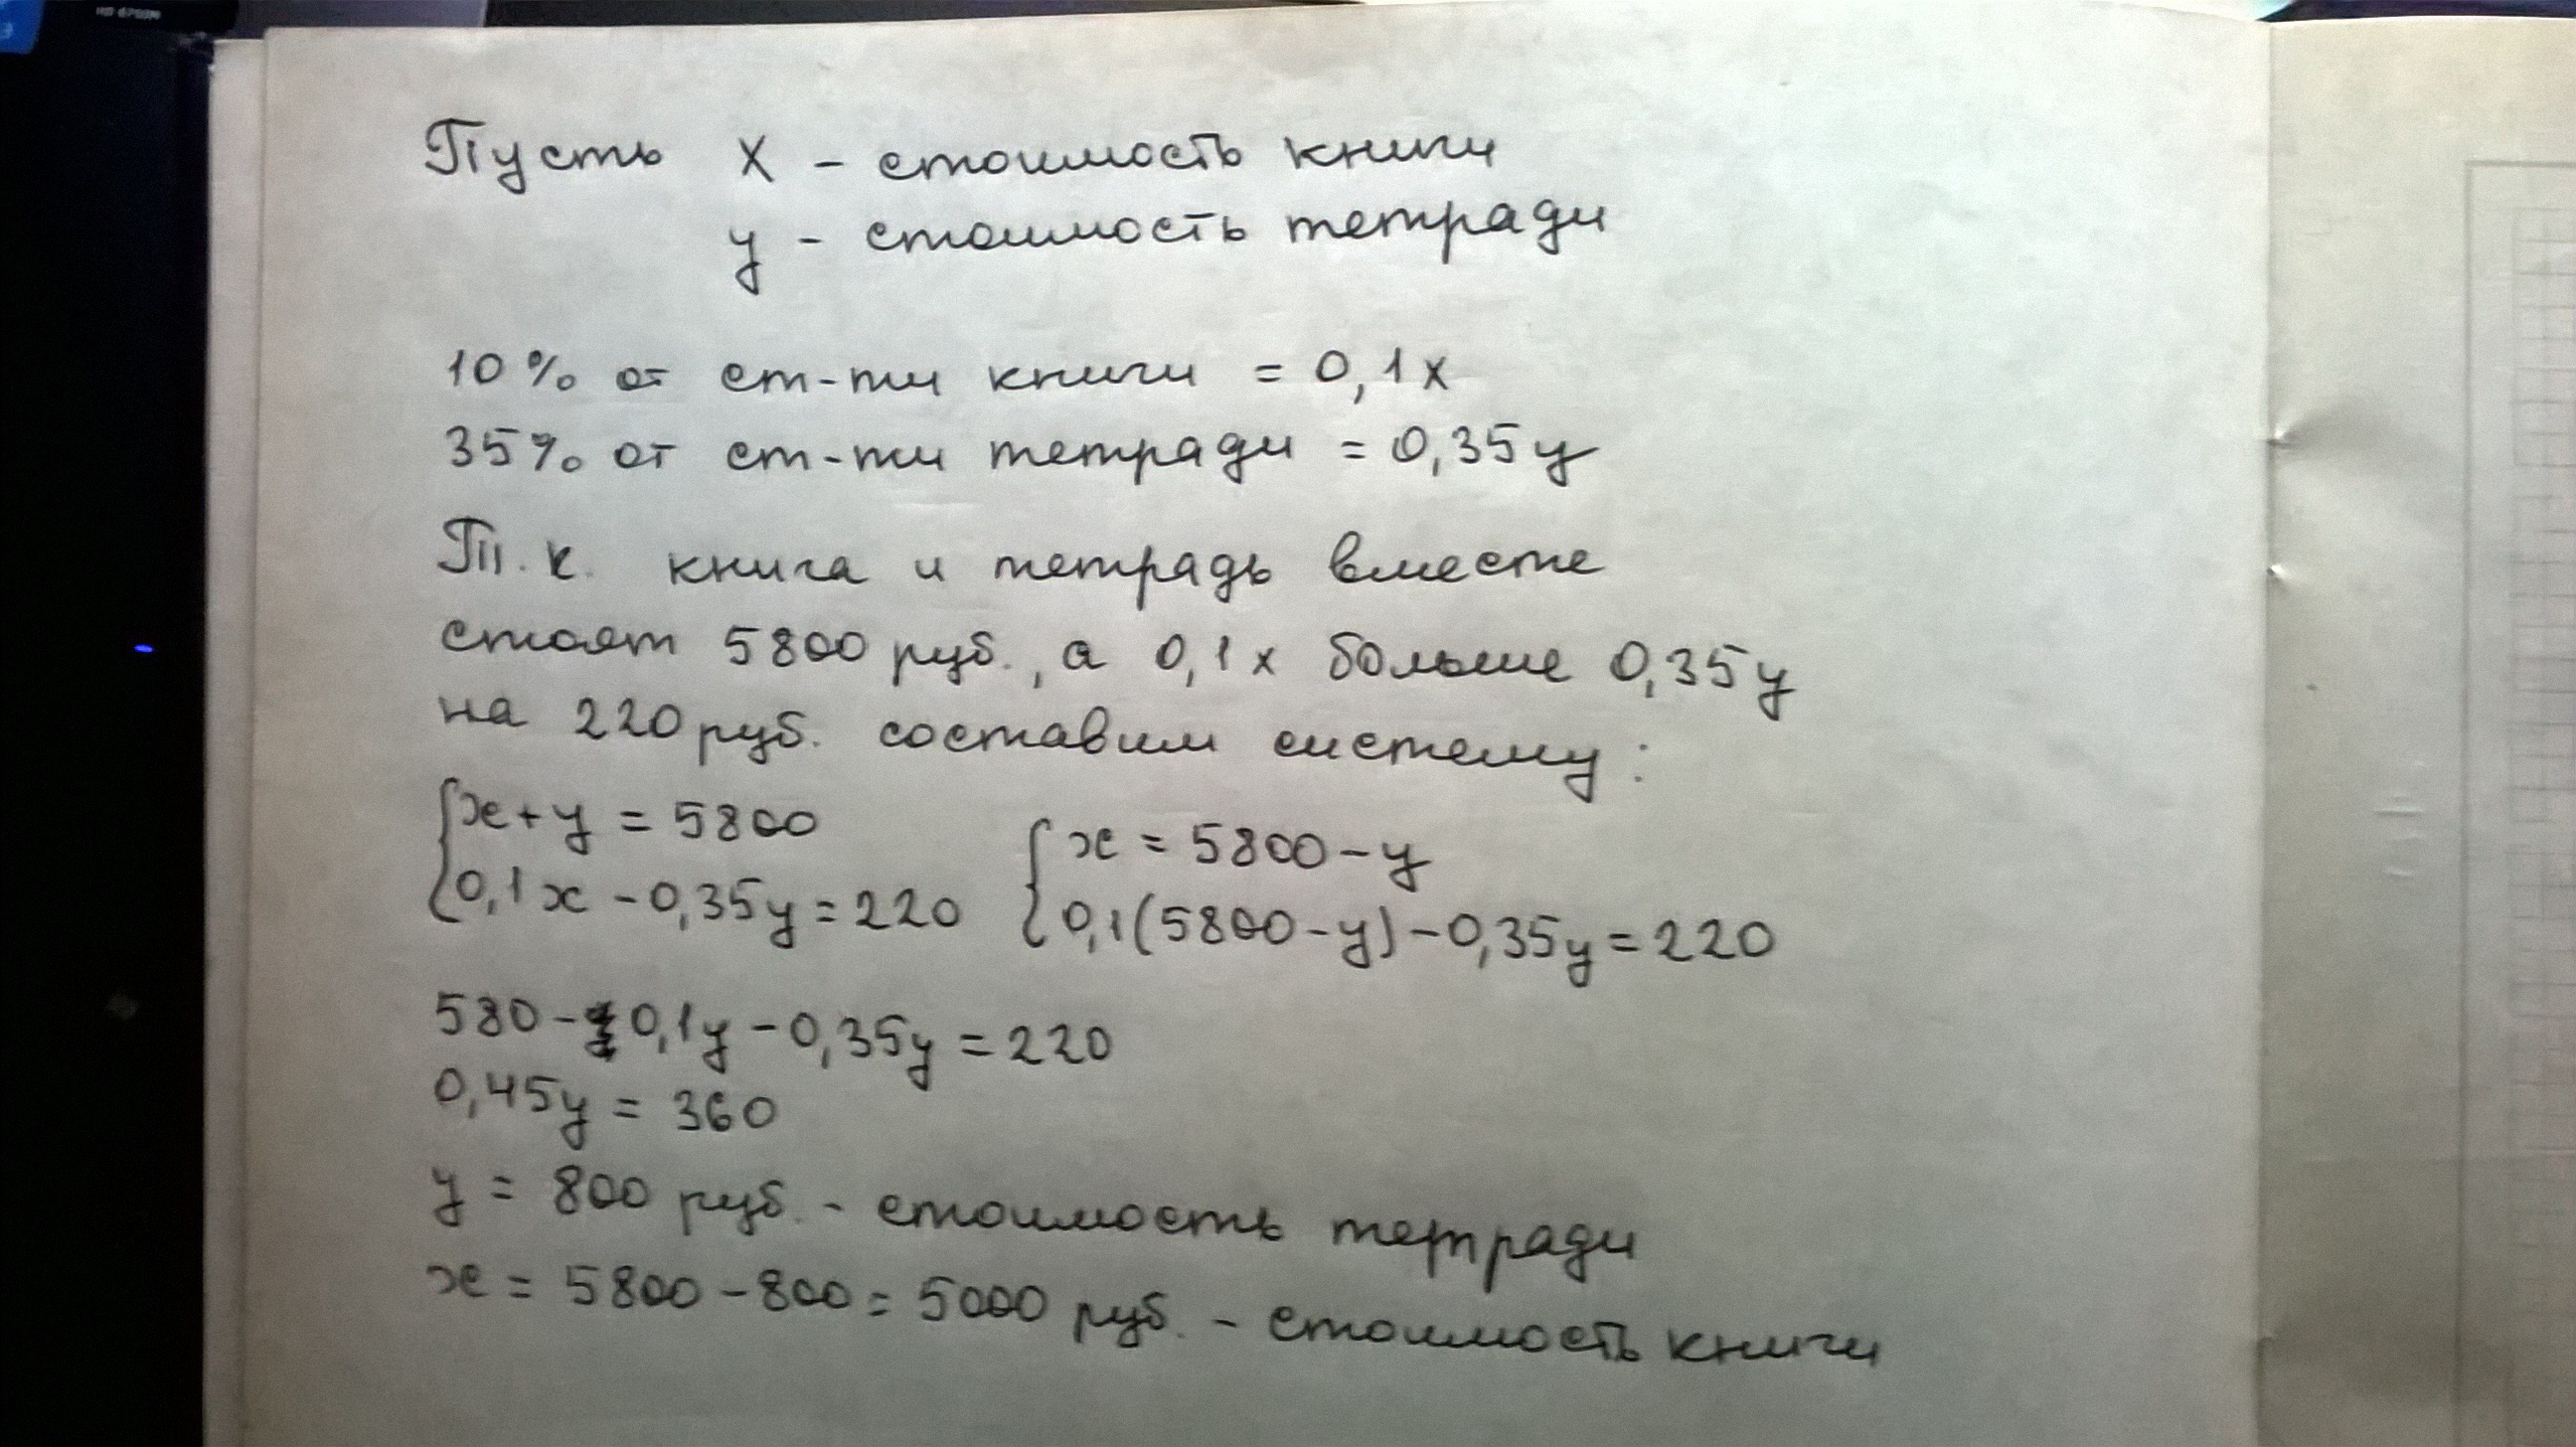 Пусть х – стоимость книги
у – стоимость тетради
10% от ст-ти книги = 0,1х
35% от ст-ти тетради = 0,35у
Т.к. книга и тетрадь вместе
стоят 5800 руб., а 0,1х больше 0,35у
на 220 руб. составим систему:
{х+у = 5800
{0,1х - 0,35у = 220
{х = 5800 - у
{0,1(5800-у) - 0,35у = 220
580 - 0,1у - 0,35у = 220
0,45у = 360
у = 800 руб. - стоимость тетради
х = 5800 - 800 = 5000 руб. - стоимость книги